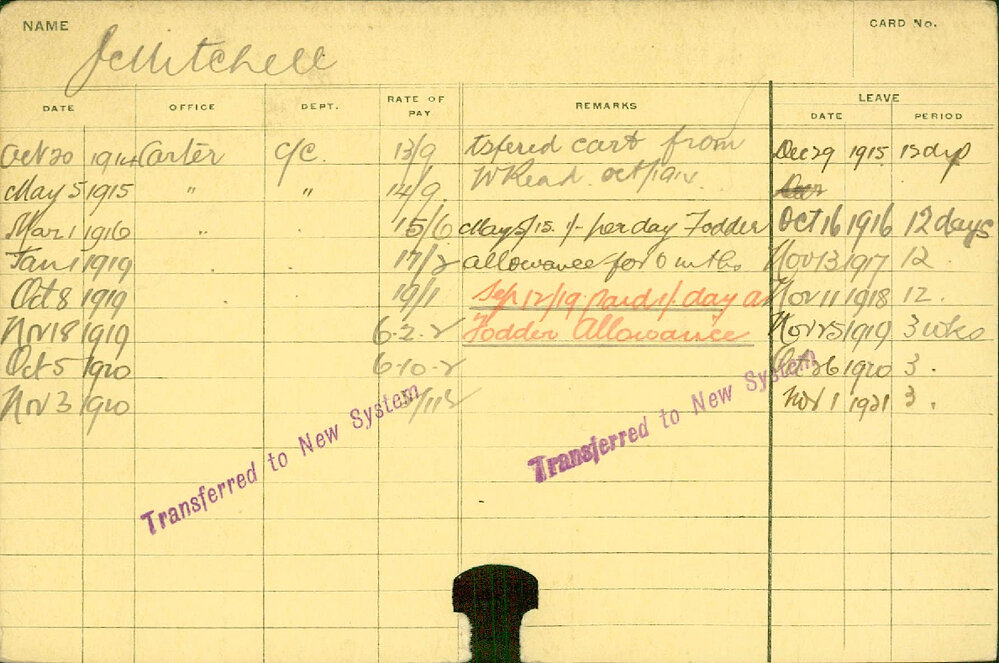 NAME
CARD No.
J C Mitchell
DATE OFFICE DEPT. RATE OF PAY REMARKS LEAVE
DATE PERIOD
Oct 20 1914 Carter C/C. 13/9 tsfered cart from Dec 29 1915 12 dys
May 5 1915 " " 14/9 W Read. Oct/1914.
Mar 1 1916 " 15/6 May 5/15. 1/- per day Fodder Oct 16 1916 12 days
Jan 1 1919 17/2 allowance for 6 mths Nov 13 1917 12
Oct 8 1919 19/1 Sep 12/19 Paid 1/. day as Nov 11 1918 12.
Nov 18 1919 6-2-2 Fodder Allowance Nov 25 1919 3 wks
Oct 5 1920 6-10-2 Oct 26 1920 3.
Nov 3 1920 Nov 1 1921 3.
Transferred to New System
Transferred to New System